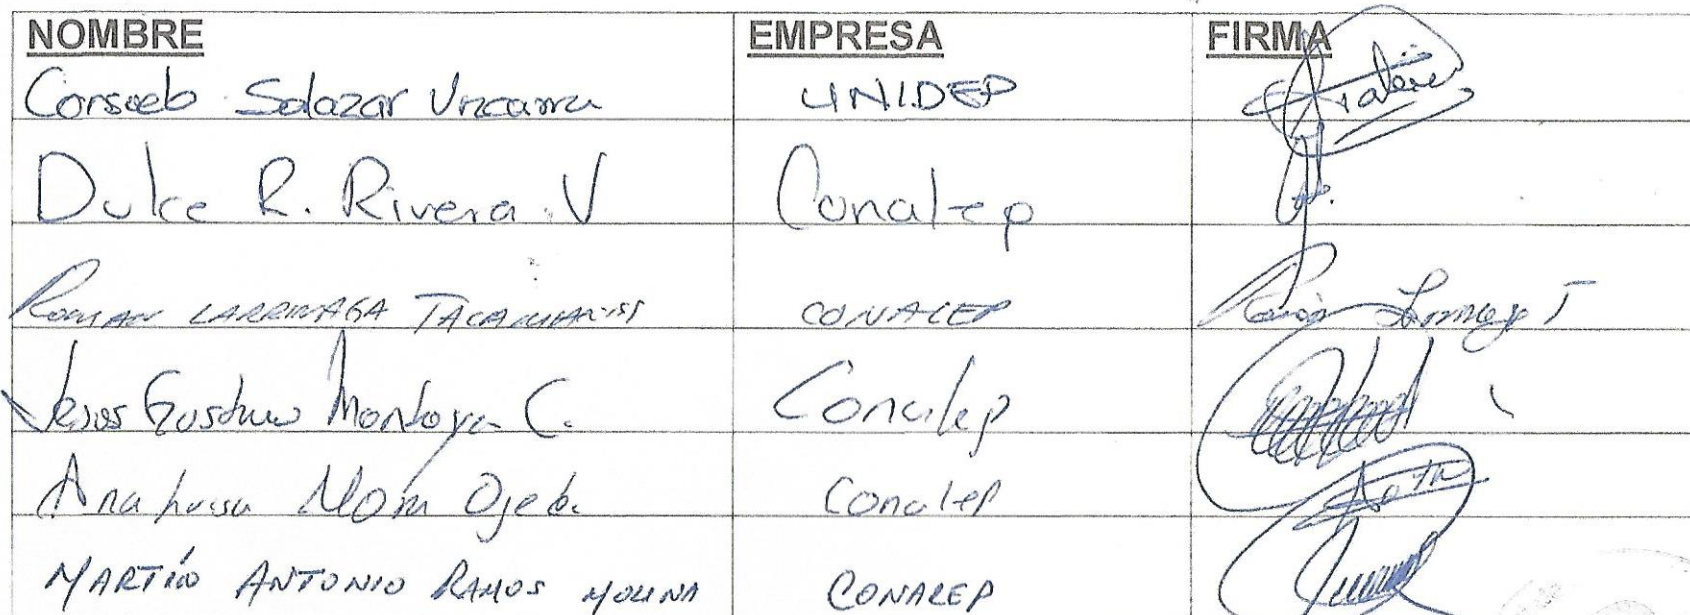 NOMBRE EMPRESA FIRMA
Consuelo Salazar Vizcarra UNIDEP
Dulce R. Rivera V Conalep
ROMAN LARRINAGA CONALEP
Jesus Gustavo Montoya C. Conalep
Ana Luisa Ojeda Conalep
MARTIN ANTONIO RAMOS MOLINA CONALEP